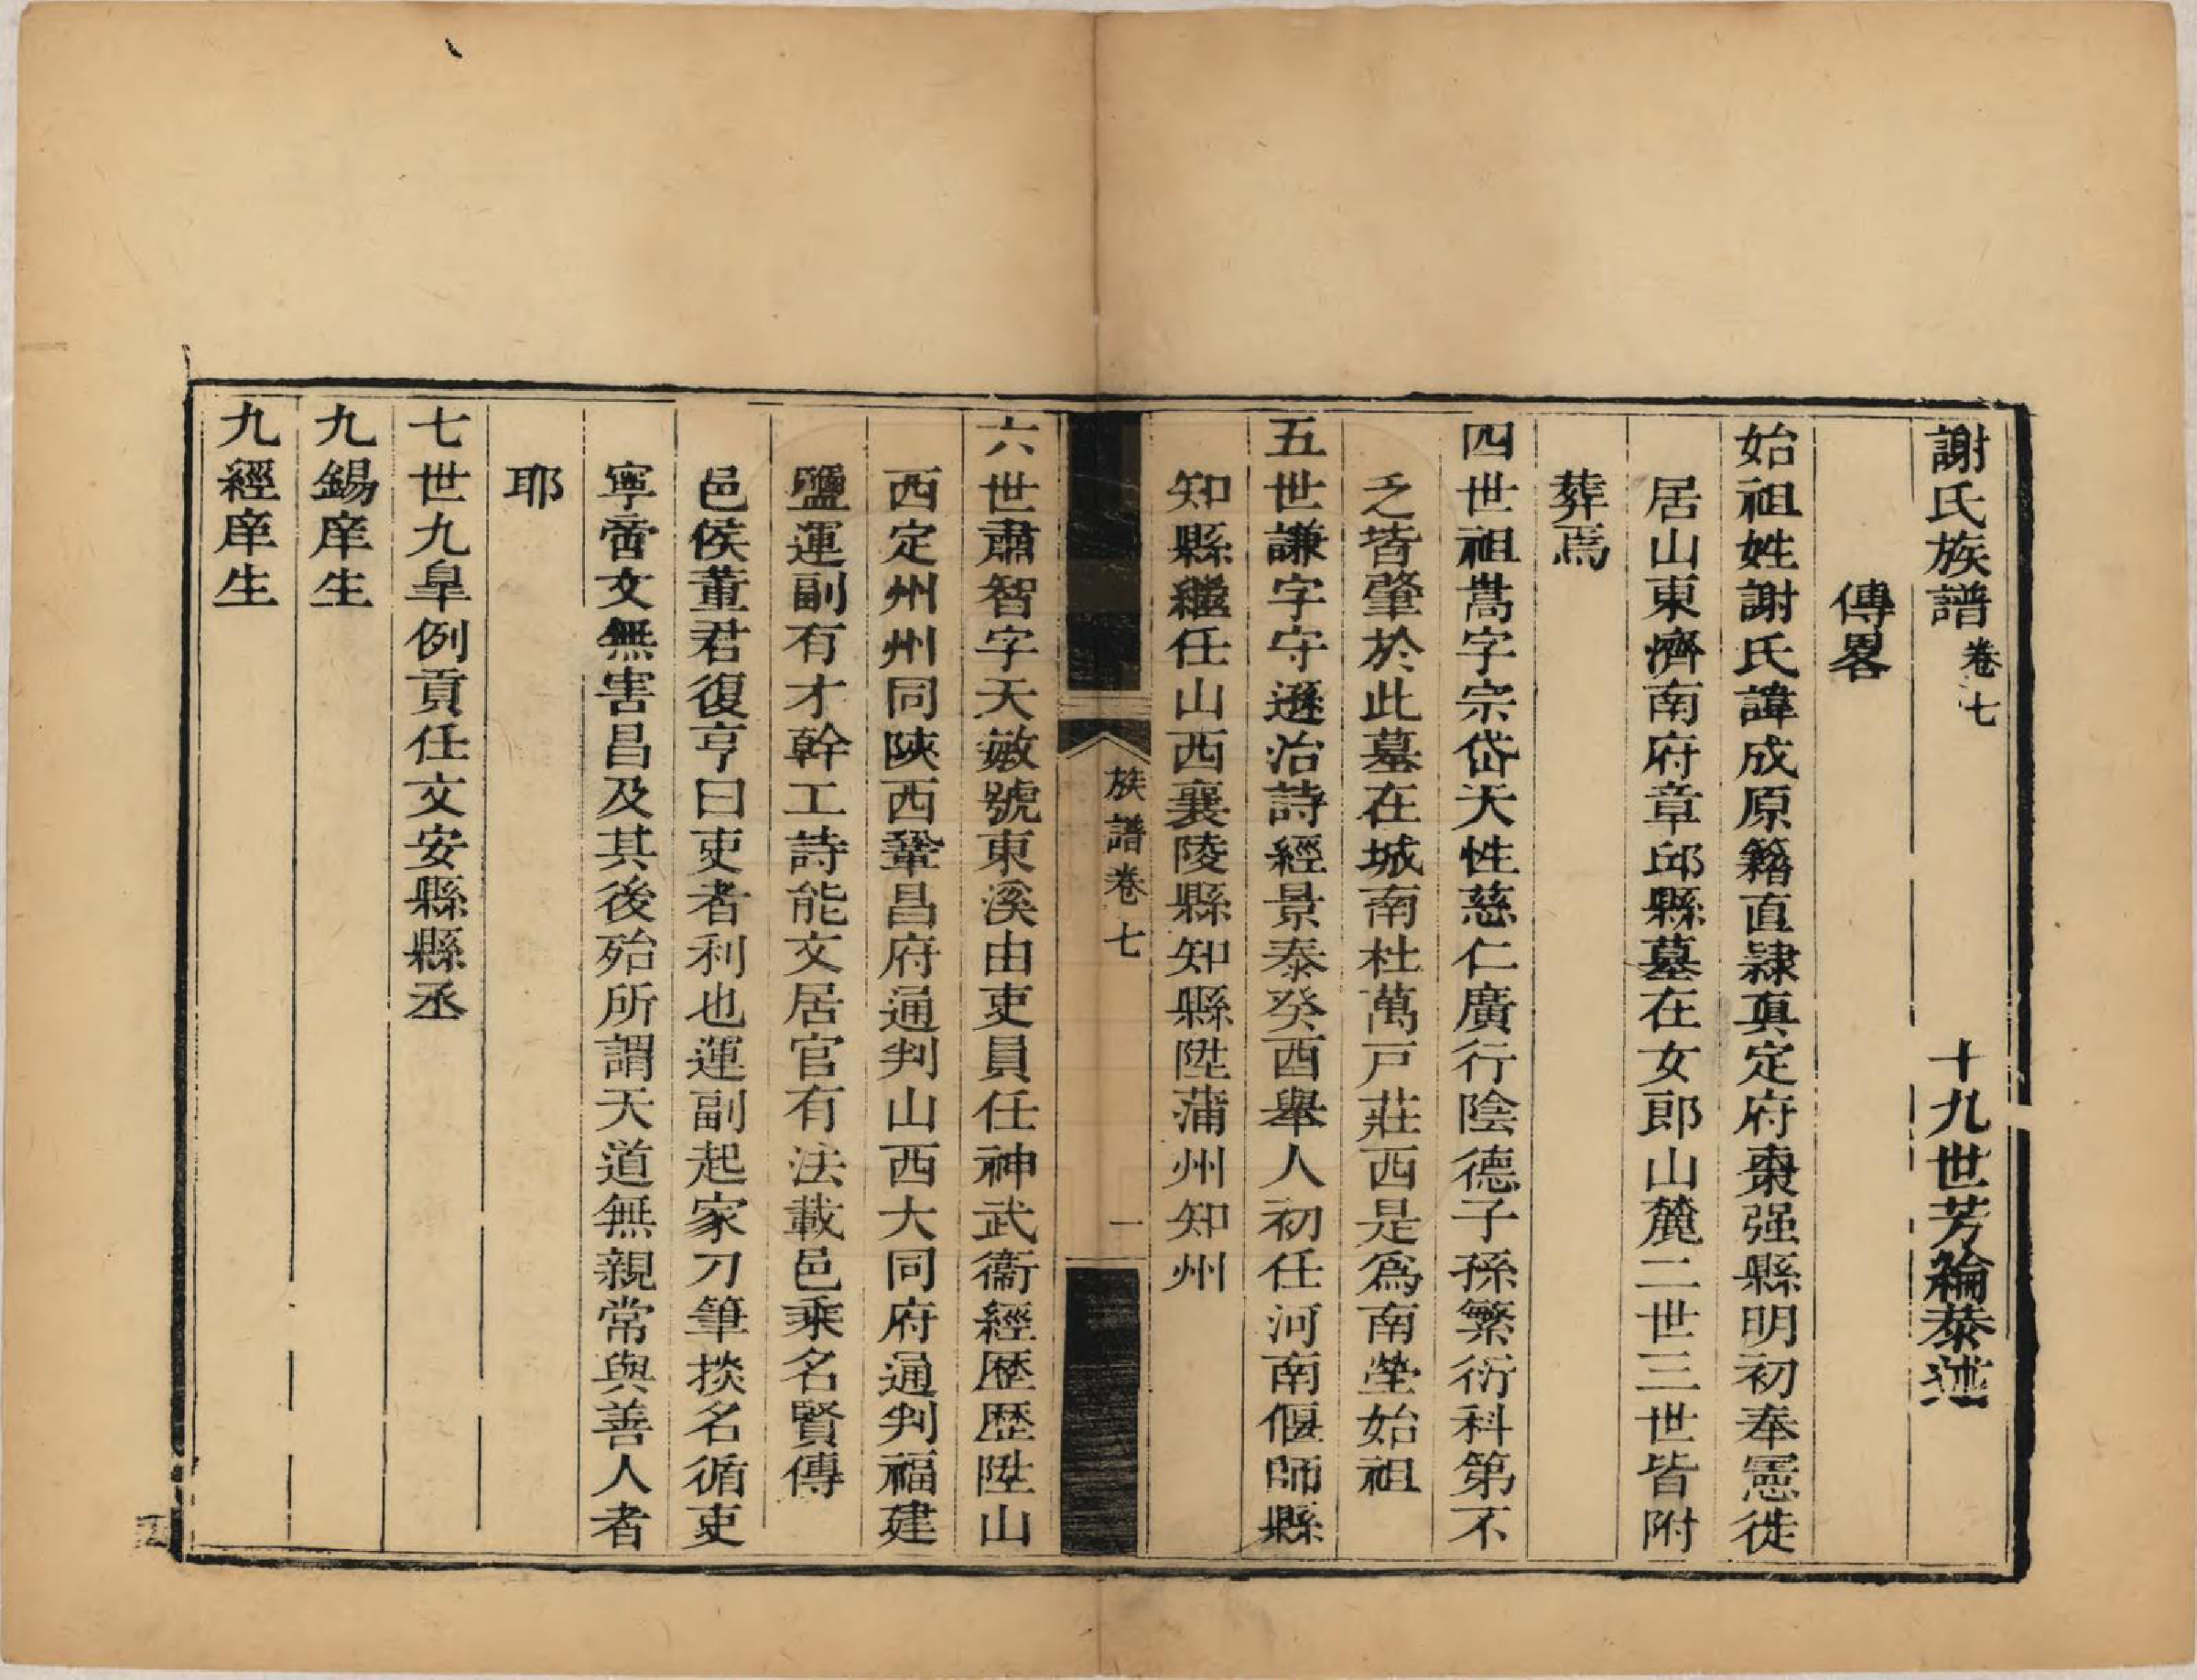 謝氏族譜卷七　十九世芳綸恭述
傳畧
始祖姓謝氏諱成原籍直隸真定府棗强縣明初奉憲徙
居山東濟南府章邱縣墓在女郎山麓二世三世皆附
葬焉
四世祖嵩字宗岱天性慈仁廣行陰德子孫繁衍科第不
乏皆肇於此墓在城南杜萬戸莊西是爲南塋始祖
五世謙字守遜治詩經景泰癸酉舉人初任河南偃師縣
知縣繼任山西襄陵縣知縣陞蒲州知州
族譜卷七　一
六世肅智字天敏號東溪由吏員任神武衞經歷歷陞山
西定州州同陝西鞏昌府通判山西大同府通判福建
鹽運副有才幹工詩能文居官有法載邑乘名賢傳
邑侯董君復亨曰吏者利也運副起家刀筆掞名循吏
寧啻文無害昌及其後殆所謂天道無親常與善人者
耶
七世九皐例貢任文安縣縣丞
九錫庠生
九經庠生